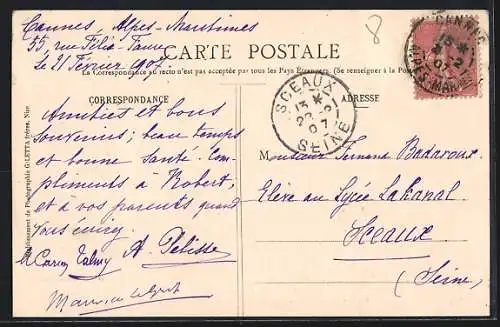 Cannes, Alpes-Maritimes
55, rue Félix-Faure
Le 21 Février 1907.
8
CARTE POSTALE
La Correspondance au recto n'est pas acceptée par tous les Pays Étrangers. (Se renseigner à la Poste
CORRESPONDANCE
ADRESSE
Amitiés et bons
souvenirs; beau temps
et bonne santé. Com-
pliments à Robert,
et à vos parents quand
vous écrirez.
A. Pelisse
SCEAUX
13
22-2
07
SEINE
CANNES
ALPES-MARITIMES
Monsieur Fernand Badaroux
Elève au Lycée Lakanal
Sceaux
(Seine)
Etablissement de Photographie GILETTA frères, Nice